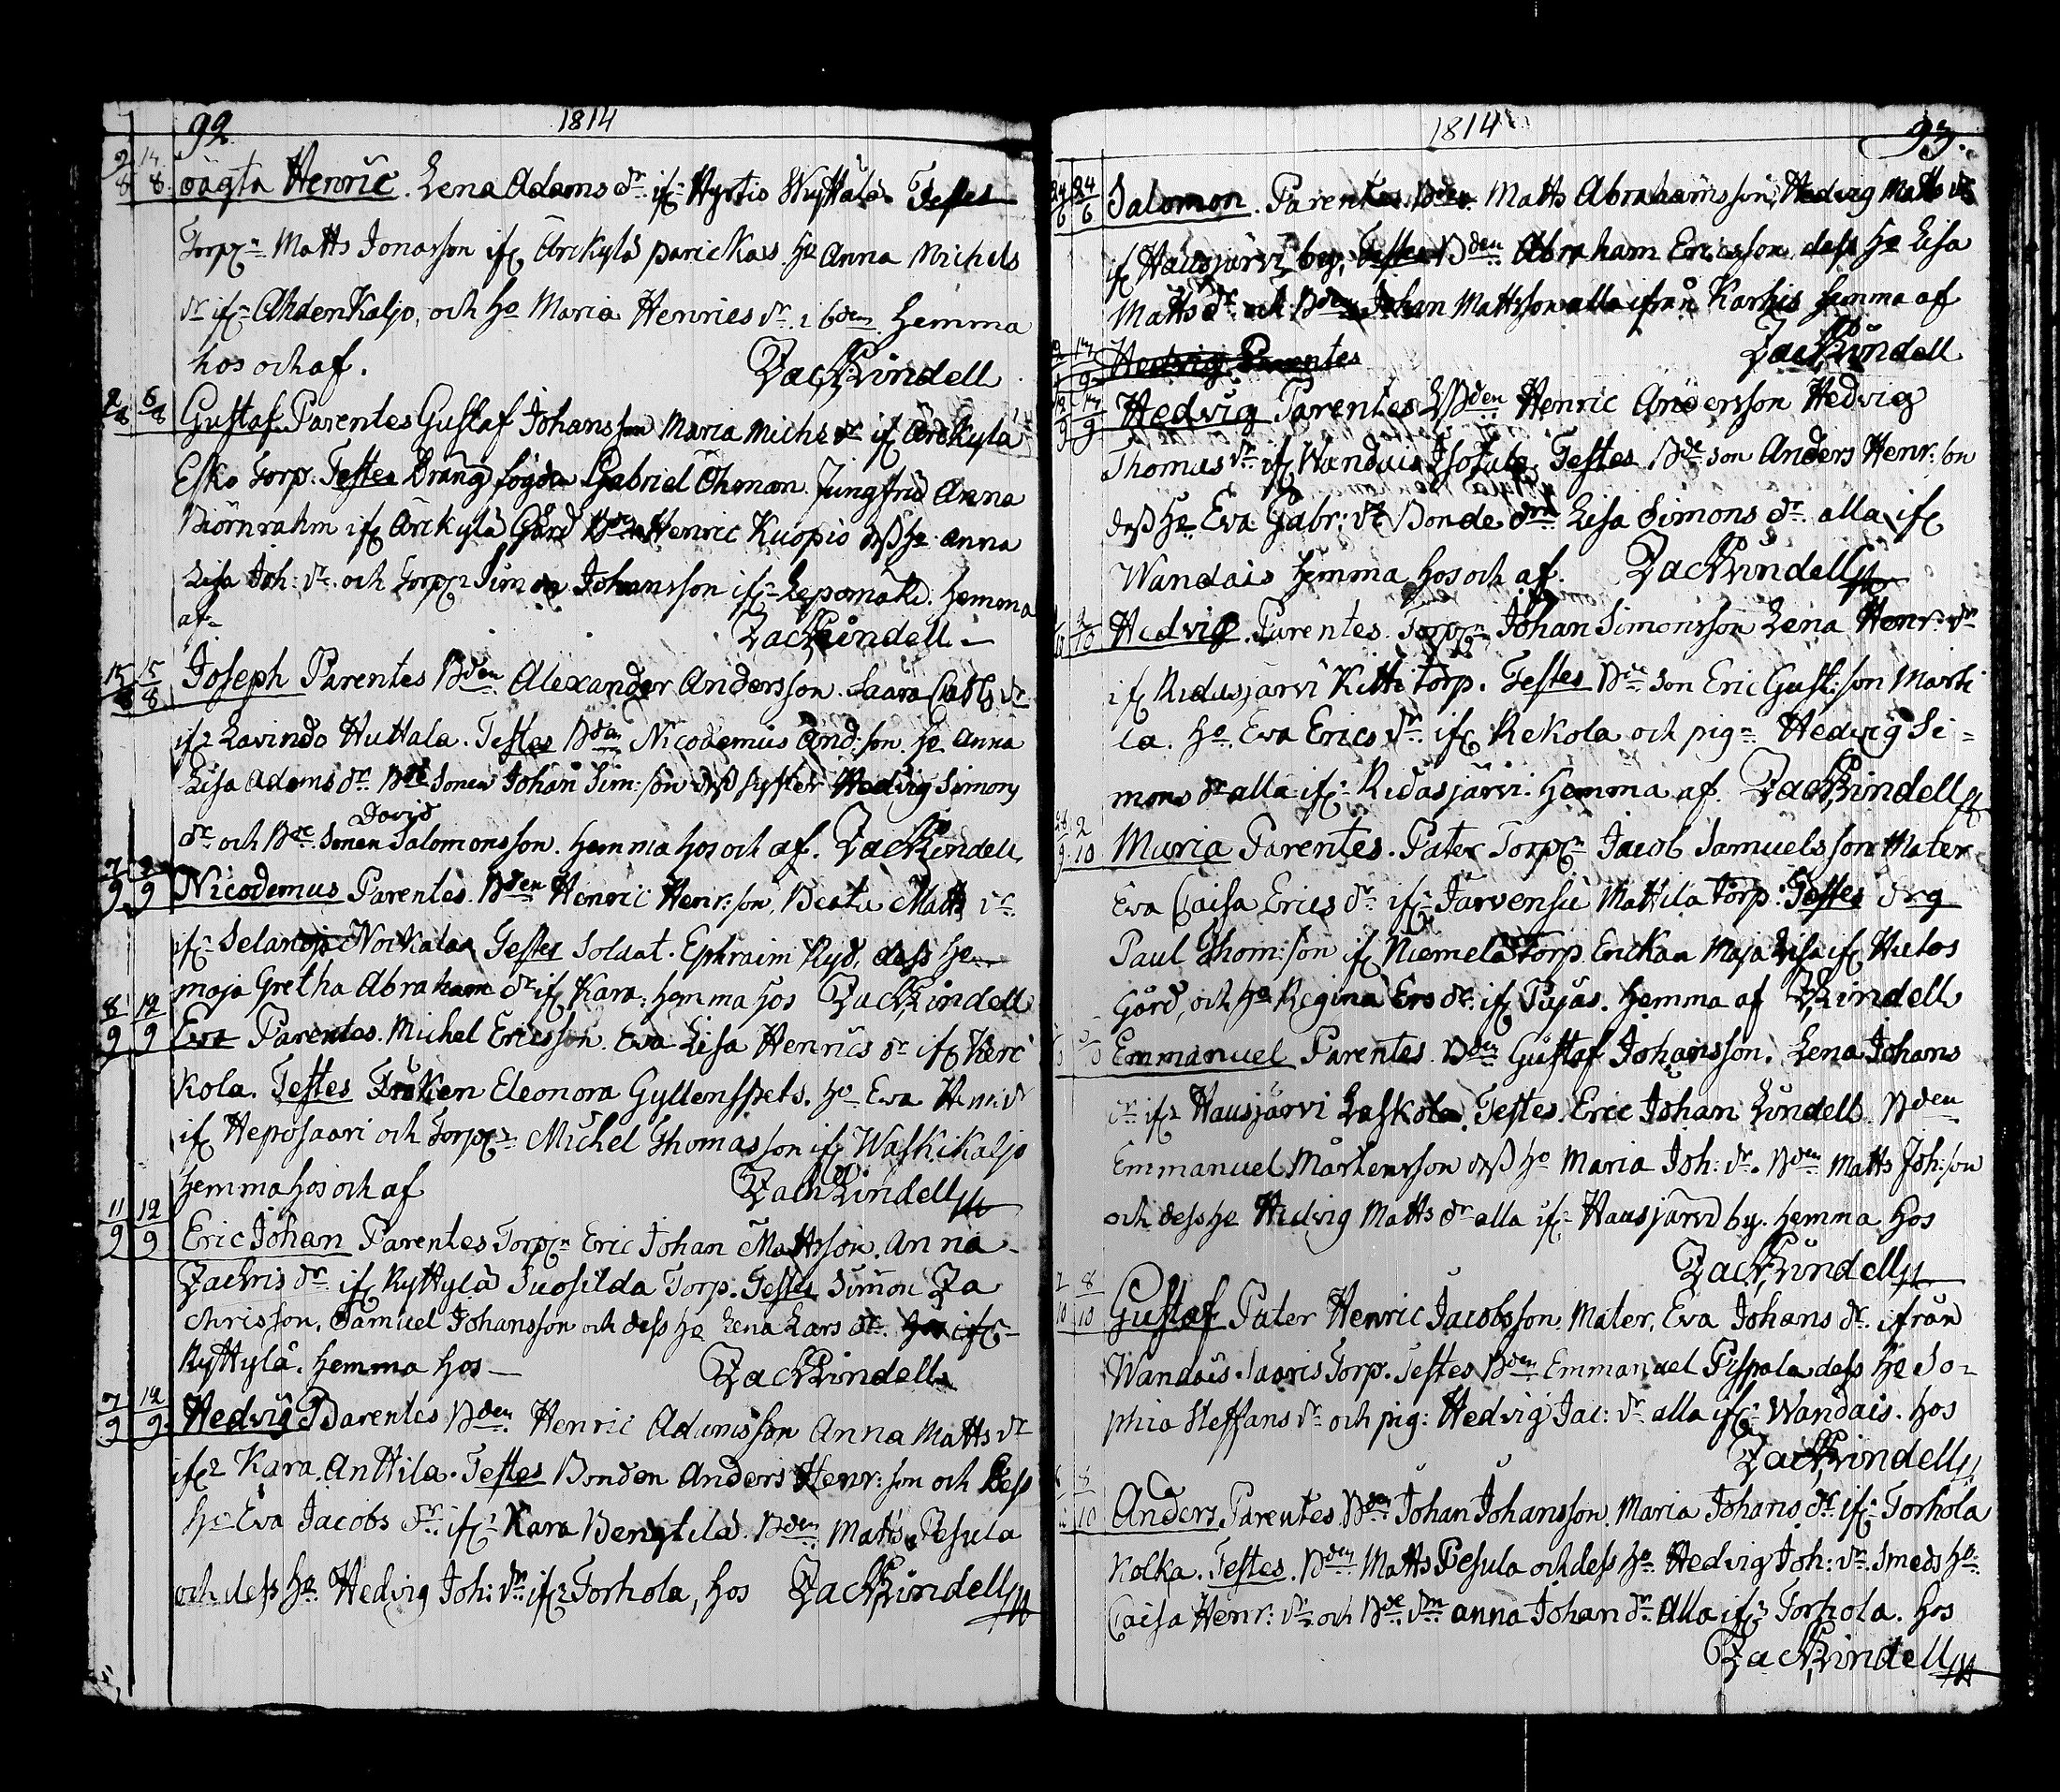 92
1814
2/8 14/8 oägta Henric. Lena Adams dr if: Hyrtis Testes
Torpn Matts Jonasson ifr Ärckylä parickas ho Anna Michels
dr if: Ahdenkaljo, och ho Maria Henrics dr i bden. Hemma
hos och af. Zach Lindell
2/8 6/8 Gustaf Parentes Gustaf Johansson Maria Michs dr if Ärckylä
Esko Torp. Testes Drängfögden Gabriel Öhman. Jungfrid Anna
Biörnrahm ifr Ärckylä Gård Henric Kuopio dess ho Anna
Lisa Joh: dr och Torpn Simon Johansson if: Lepomäki. Hemma
af Zach Lindell
15/8 15/8 Joseph Parentes Bden Alexander Andersson. Saara dr
ifr Lavindo Huttala. Testes Bden Nicodemus And:son. ho Anna
Lisa Adams dr Bde Sonen Johan Sim:son dess syster Hedvig Simons
David
dr och Bde Sonen Salomonsson. Hemma hos och af. Zach Lindell
7/9 9/9 Nicodemus Parentes. Bden Henric Henr:son, Beata Matts dr
if: Selanoja Norkalan Testes Soldat. Ephraim Ryd, dess ho
Maja Gretha Abraham dr if Kara: Hemma hos Zach Lindell
8/9 12/9 Eva Parentes. Michel Ericsson. Eva Lisa Henrics dr ifr Kerc
kola. Testes Fröken Eleonora Gyllenspets. ho Eva Henr: dr
ifr Heposaari och Torpn Michel Thomasson ifr Waskikaljo
Hemma hos och af Zach Lindell
11/9 12/9 Eric Johan Parentes Torpn Eric Johan Mattsson. Anna
Zachris dr ifr Ryttylä Suosilda Torp. Testes Simon Za
chrisson, Samuel Johansson och dess ho Lena Lars dr. ifr
Ryttylä. Hemma hos Zach Lindell
7/9 12/9 Hedvig Parentes Bden Henric Adamsson Anna Matts dr
ifr Kara Anttila. Testes Bonden Anders Henr:son och dess
ho Eva Jacobs dr if: Kara Bengtilä. Bden Matts Pesula
och dess ho Hedvig Joh: dr ifr Torhola, hos Zach Lindell
1814
93.
24/6 Salomon. Parentes. Bden Matts Abrahamsson, Hedvig Matts dr
if Hausjärvi by. Testes Bden Abraham Ericsson dess ho Lisa
Matts dr och Bden Johan Mattsson alla ifrån Karhis Hemma af
Zach Lindell
17/9 Hedvig Parentes
12/9 17/9 Hedvig Parentes Bden Henric Andersson Hedvig
Thomas dr ifr Wandais Isotalo. Testes Bde son Anders Henr:son
dess ho Eva Gabr: dr Bonde drn Lisa Simons dr alla ifr
Wandais Hemma hos och af. Zach Lindell
2/10 Hedvig Parentes. Torpn Johan Simonsson Lena Henr: dr
ifr Ridasjärvi Kitti Torp. Testes Bde Son Eric Gust:son Marti
la. ho Eva Erics dr ifr Rekola och pign Hedvig Si=
mons dr alla ifr Ridasjärvi. Hemma af. Zach Lindell
28/9 2/10 Maria Parentes. Pater Torpn Jacob Samuelsson Mater
Eva Caisa Erics dr ifr Järvensu Mattila Torp. Testes drg
Paul Thom:son ifr Niemelä Torp Enckan Maja Lisa ifr Hutos
Gård, och ho Regina Ers dr ifr Pujas. Hemma af Z Lindell
Emmanuel Parentes. Bden Gustaf Johansson. Lena Johans
dr ifr Hausjärvi Laskola, Testes. Eric Johan Lindell. Bden
Emmanuel Mårtensson dess ho Maria Joh: dr. Bden Matts Joh:son
och dess ho Hedvig Matts dr alla ifr Hausjärvi by. Hemma hos
Zach Lindell
2/10 8/10 Gustaf Pater Henric Jacobsson. Mater, Eva Johans dr. ifrån
Wandais. Saaris Torp. Testes Bden Emmanuel Pispala dess ho So-
phia Steffans dr och pig: Hedvig Jac: dr alla ifr Wandais. hos
Zach Lindell
8/10 Anders Parentes. Bden Johan Johansson. Maria Johans dr. ifr Torhola
Kolka. Testes. Bden Matts Pesula och dess ho Hedvig Joh: dr. Smeds ho
Caisa Henr: dr och Bde drn Anna Johan dr Alla ifr Torhola. hos
Zach Lindell